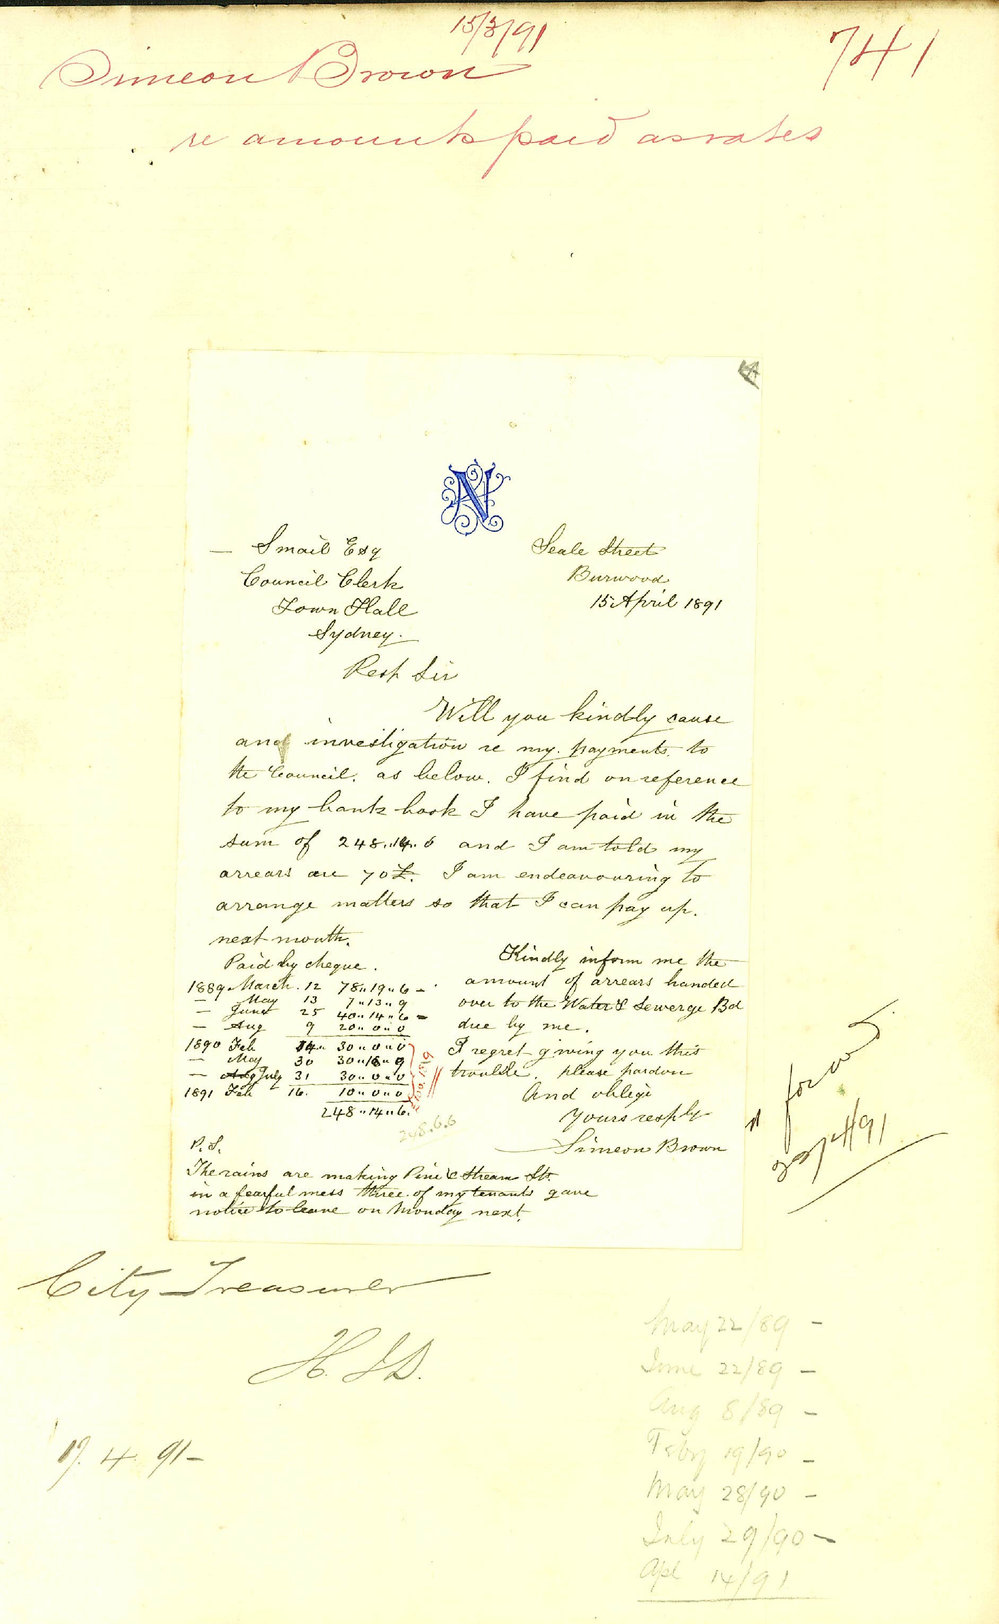 15/3/91
741
Simeon Brown
re amounts paid as rates
N
— Smail Esq
Council Clerk
Town Hall
Sydney.
Seale Street
Burwood
15 April 1891
Resp Sir
Will you kindly cause
and investigation re my payments to
the Council. as below. I find on reference
to my bank book I have paid in the
sum of 248..14..6 and I am told my
arrears are 70£. I am endeavouring to
arrange matters so that I can pay up.
next month.
Paid by cheque.
1889 March. 12 78..19..6
— May 13 7..13..9
— June 25 40..14..6
— Aug 9 20..0..0
1890 Feb 14.. 30..0..0
— May 30 30..16..9
— Aug July 31 30..0..0
1891 Feb 16. 10..0..0
248..14..6
248.6.6
Kindly inform me the
amount of arrears handed
over to the Water & Sewerge Bd
due by me.
I regret giving you this
trouble. please pardon
And oblige
Yours resply
Simeon Brown
P.S.
The rains are making Pine & Stream Sts.
in a fearful mess three of my tenants gave
notice to leave on Monday next.
23/4/91
City Treasurer
H.
17. 4. 91 –
May 22/89 –
June 22/89 –
Aug 8/89 –
Feby 19/90 –
May 28/90 –
July 29/90 –
Apl 14/91